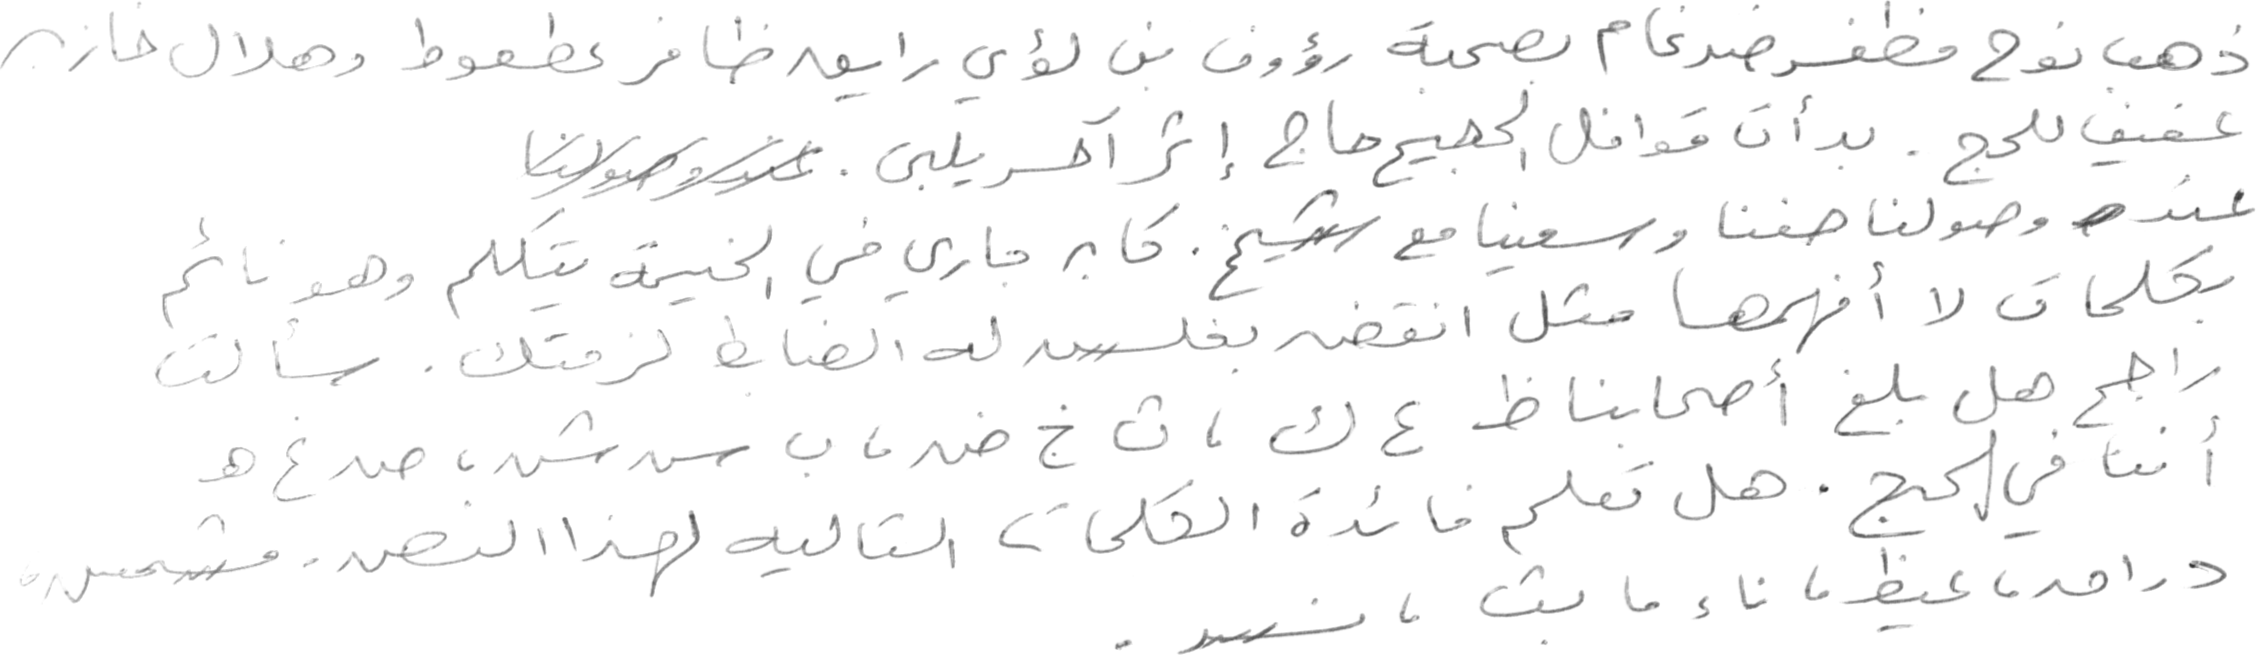 ذهب نوح مظفر ضرغام بصحبة رؤوف بن لؤي رايق ظافر عطعوط وهلال خازن
عفيف للحج . بدأت قوافل الحجيج حاج إثر آخر يلبي .
عند وصولنا طفنا وسعينا مع شيخ . كان جاري في الخيمة يتكلم وهو نائم
بكلمات لا أفهمها مثل انقض بغلس له الضابط لزمتك . سألت
راجح هل بلغ أصحابنا ظ ع ك ، ث خ ض ، ب س ش ، ص غ هـ
أننا في الحج . هل تعلم فائدة الكلمات التالية لهذا النص . مشمس ،
دراق ، غيظ ، ناء ، بث ، نسر .